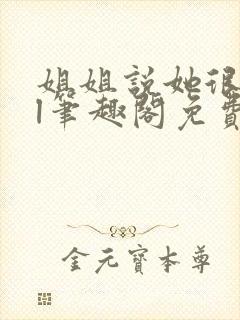 姐姐說她很
l筆趣閣免費
金元寶本尊